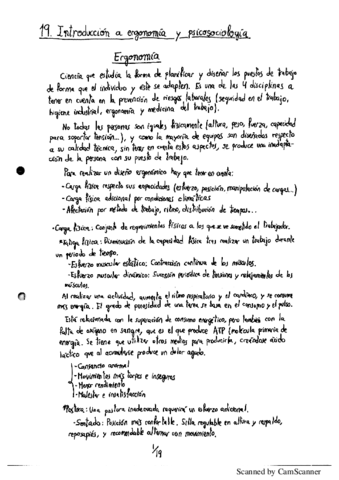 19. Introducción a ergonomía y psicosociología
Ergonomía
Ciencia que estudia la forma de planificar y diseñar los puestos de trabajo
de forma que el individuo y este se adapten. Es una de las 4 disciplinas a
tener en cuenta en la prevención de riesgos laborales (seguridad en el trabajo,
higiene industrial, ergonomía y medicina del trabajo).
No todas las personas son iguales físicamente (altura, peso, fuerza, capacidad
para soportar tensión...), y como la mayoría de equipos son diseñados respecto
a su calidad técnica, sin tener en cuenta estos aspectos, se produce una inadap-
tación de la persona con su puesto de trabajo.
Para realizar un diseño ergonómico hay que tener en cuenta:
- Carga física respecto sus capacidades (esfuerzo, posición, manipulación de cargas...)
- Carga física adicional por condiciones climáticas
- Afectación por método de trabajo, ritmo, distribución de tiempos...
- Carga física: Conjunto de requerimientos físicos a los que se ve sometido el trabajador.
*Fatiga física: Disminución de la capacidad física tras realizar un trabajo durante
un periodo de tiempo.
- Esfuerzo muscular estático: Contracción continua de los músculos.
- Esfuerzo muscular dinámico: Sucesión periódica de tensiones y relajamientos de los
músculos.
Al realizar una actividad, aumenta el ritmo respiratorio y el cardiaco, y se consume
más energía. El grado de penosidad de una tarea se basa en el consumo y el pulso.
Está relacionada con la superación de consumo energético, pero también con la
falta de oxígeno en sangre, que es el que produce ATP (molécula primaria de
energía). Se tiene que utilizar otros medios para producirla, creándose ácido
láctico que al acumularse produce un dolor agudo.
- Cansancio anormal
- Movimientos más torpes e inseguros
- Menor rendimiento
- Malestar e insatisfacción
*Postura: Una postura inadecuada requerirá un esfuerzo adicional.
- Sentado: Posición más confortable. Silla regulable en altura y respaldo,
reposapiés, y recomendable alternar con movimiento.
1/19
Scanned by CamScanner